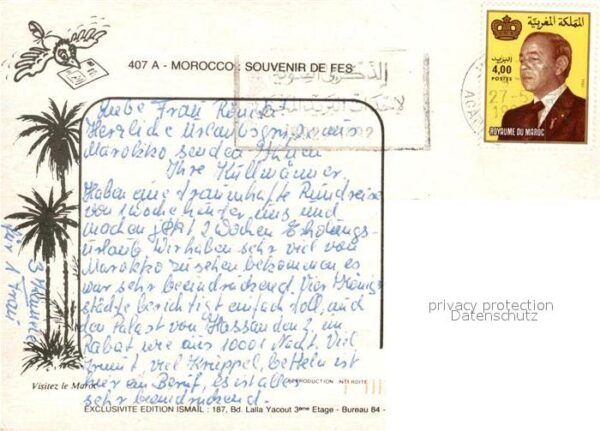 407 A - MOROCCO - SOUVENIR DE FES
المملكة المغربية
البريد
4,00
POSTES
ROYAUME DU MAROC
الذكرى
27-5
Liebe Frau
Herzliche Urlaubsgrüße aus
Marokko senden Ihnen
Ihre Küllmänner.
Haben eine traumhafte Rundreise
von 1 Woche hinter uns und
machen jetzt 2 Wochen Erholungs-
urlaub. Wir haben sehr viel von
Marokko zu sehen bekommen, es
war sehr beeindruckend. Vier Königs
städte besichtigt einfach toll, und
den Palast von Hassan den 2. in
Rabat wie aus 1001 Nacht. Viel
Armut, viel Krüppel, betteln ist
hier ein Beruf, es ist alles
sehr beeindruckend.
für 1 Frau
privacy protection
Datenschutz
Visitez le Maroc
REPRODUCTION INTERDITE
EXCLUSIVITE EDITION ISMAIL : 187, Bd. Lalla Yacout 3ème Etage - Bureau 84 -